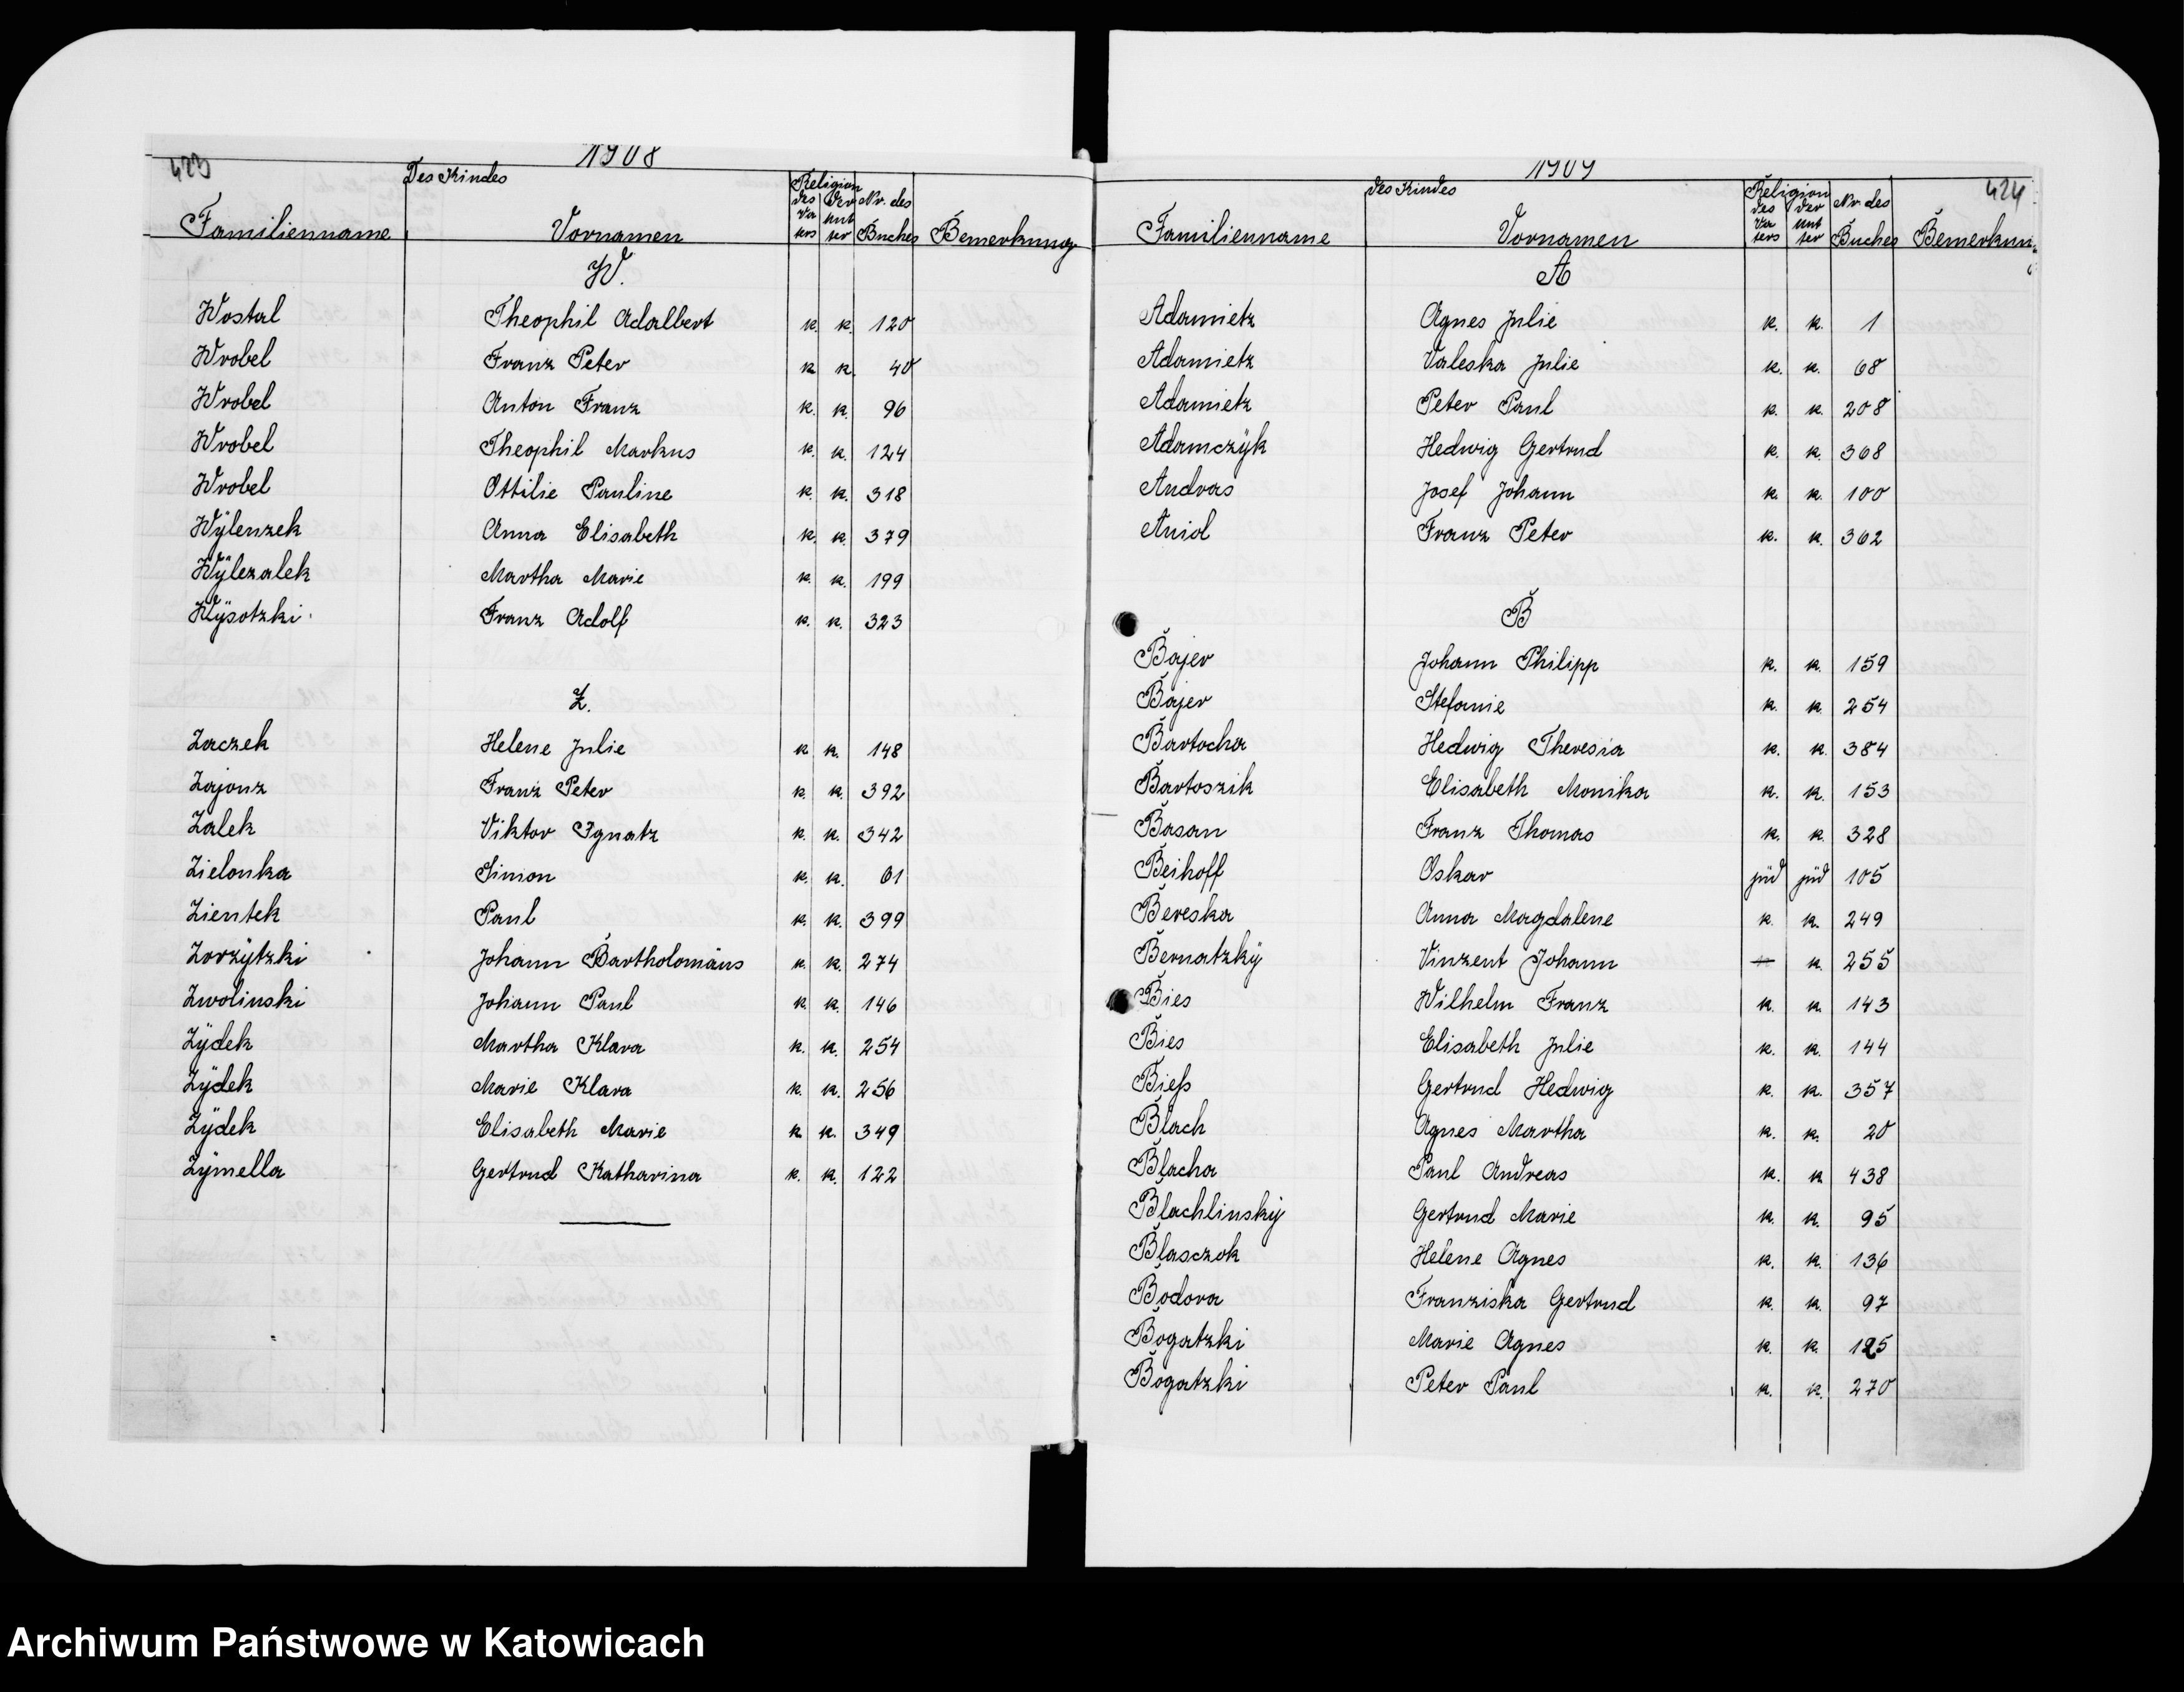 423
1908
Des Kindes
Religion
des Vaters
der Mutter
Nr. des Buches
Familienname Vornamen Bemerkung
W.
Wostal Theophil Adalbert k. k. 120
Wrobel Franz Peter k k. 40
Wrobel Anton Franz k. k. 96
Wrobel Theophil Markus k. k. 124
Wrobel Ottilie Pauline k. k. 318
Wÿlenzek Anna Elisabeth k. k. 379
Wÿlezalek Martha Marie k. k. 199
Wÿsotzki Franz Adolf k. k. 323
Z.
Zaczek Helene Julie k k. 148
Zajonz Franz Peter k. k. 392
Zalek Viktor Ignatz k. k. 342
Zielonka Simon k. k. 61
Zientek Paul k. k. 399
Zorzÿtzki Johann Bartholomäus k. k. 274
Zwolinski Johann Paul k. k. 146
Zÿdek Martha Klara k. k. 254
Zÿdek Marie Klara k. k. 256
Zÿdek Elisabeth Marie k k. 349
Zÿmella Gertrud Katharina k. k. 122
1909
424
des Kindes
Religion
des Vaters
der Mutter
Nr. des Buches
Familienname Vornamen Bemerkung
A
Adamietz Agnes Julie k. k. 1
Adamietz Valeska Julie k. k. 68
Adamietz Peter Paul k. k. 208
Adamczÿk Hedwig Gertrud k. k. 368
Andras Josef Johann k. k. 100
Aniol Franz Peter k. k. 362
B
Bajer Johann Philipp k. k. 159
Bajer Stefanie k. k 254
Bartocha Hedwig Theresia k. k. 384
Bartoszik Elisabeth Monika k. k. 153
Basan Franz Thomas k. k. 328
Beihoff Oskar jüd jüd 105
Bereska Anna Magdalene k. k. 249
Bernatzkÿ Vinzent Johann — k. 255
Bies Wilhelm Franz k. k. 143
Bies Elisabeth Julie k. k. 144
Bieß Gertrud Hedwig k. k. 357
Blach Agnes Martha k. k. 20
Blacha Paul Andreas k. k 438
Blachlinskÿ Gertrud Marie k. k. 95
Blasczok Helene Agnes k. k. 136
Bodora Franziska Gertrud k. k. 97
Bogatzki Marie Agnes k. k. 125
Bogatzki Peter Paul k. k. 270
Archiwum Państwowe w Katowicach